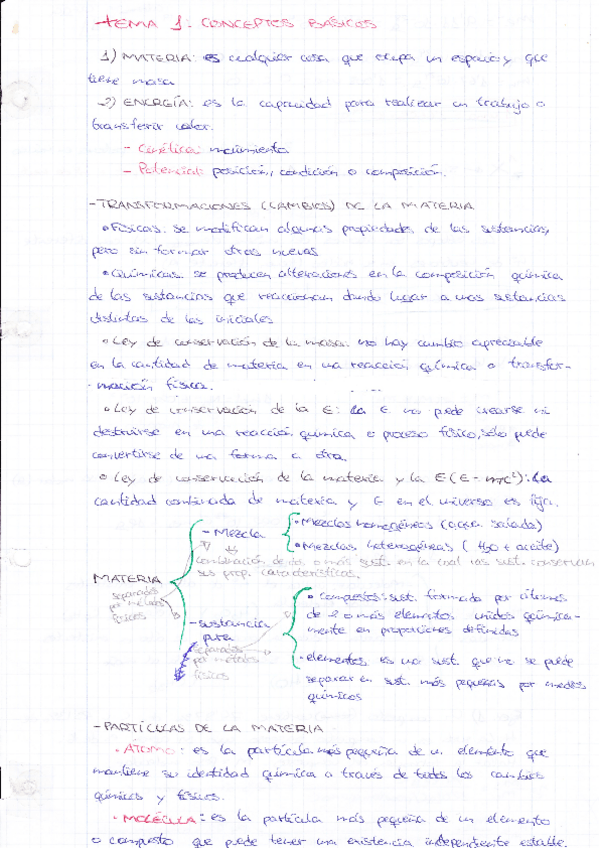 TEMA 1. CONCEPTOS BÁSICOS
1) MATERIA: es cualquier cosa que ocupa un espacio y que
tiene masa
2) ENERGÍA: es la capacidad para realizar un trabajo o
transferir calor.
- Cinética: movimiento
- Potencial: posición, condición o composición.
- TRANSFORMACIONES (CAMBIOS) DE LA MATERIA
• Físicas: se modifican algunas propiedades de las sustancias,
pero sin formar otras nuevas
• Químicas: se producen alteraciones en la composición química
de las sustancias que reaccionan dando lugar a unas sustancias
distintas de las iniciales
• Ley de conservación de la masa: no hay cambio apreciable
en la cantidad de materia en una reacción química o transfor-
-mación física.
• Ley de conservación de la E: La E no puede crearse ni
destruirse en una reacción química o proceso físico, sólo puede
convertirse de una forma a otra.
• Ley de conservación de la materia y la E (E = mc²): La
cantidad combinada de materia y E en el universo es fija.
- Mezcla
• Mezclas homogéneas (agua salada)
• Mezclas heterogéneas (H₂O + aceite)
combinación de dos o más sust. en la cual las sust. conservan
sus prop. características.
MATERIA
separados
por métodos
físicos
- sustancia
pura
separados
por métodos
físicos
• compuestos: sust. formada por átomos
de 2 o más elementos unidos química-
mente en proporciones definidas
- elementos es una sust. que no se puede
separar en sust. más pequeñas por medios
químicos
- PARTÍCULAS DE LA MATERIA
• ATOMO: es la partícula más pequeña de un elemento que
mantiene su identidad química a través de todos los cambios
químicos y físicos.
• MOLÉCULA: es la partícula más pequeña de un elemento
o compuesto que puede tener una existencia independiente estable.